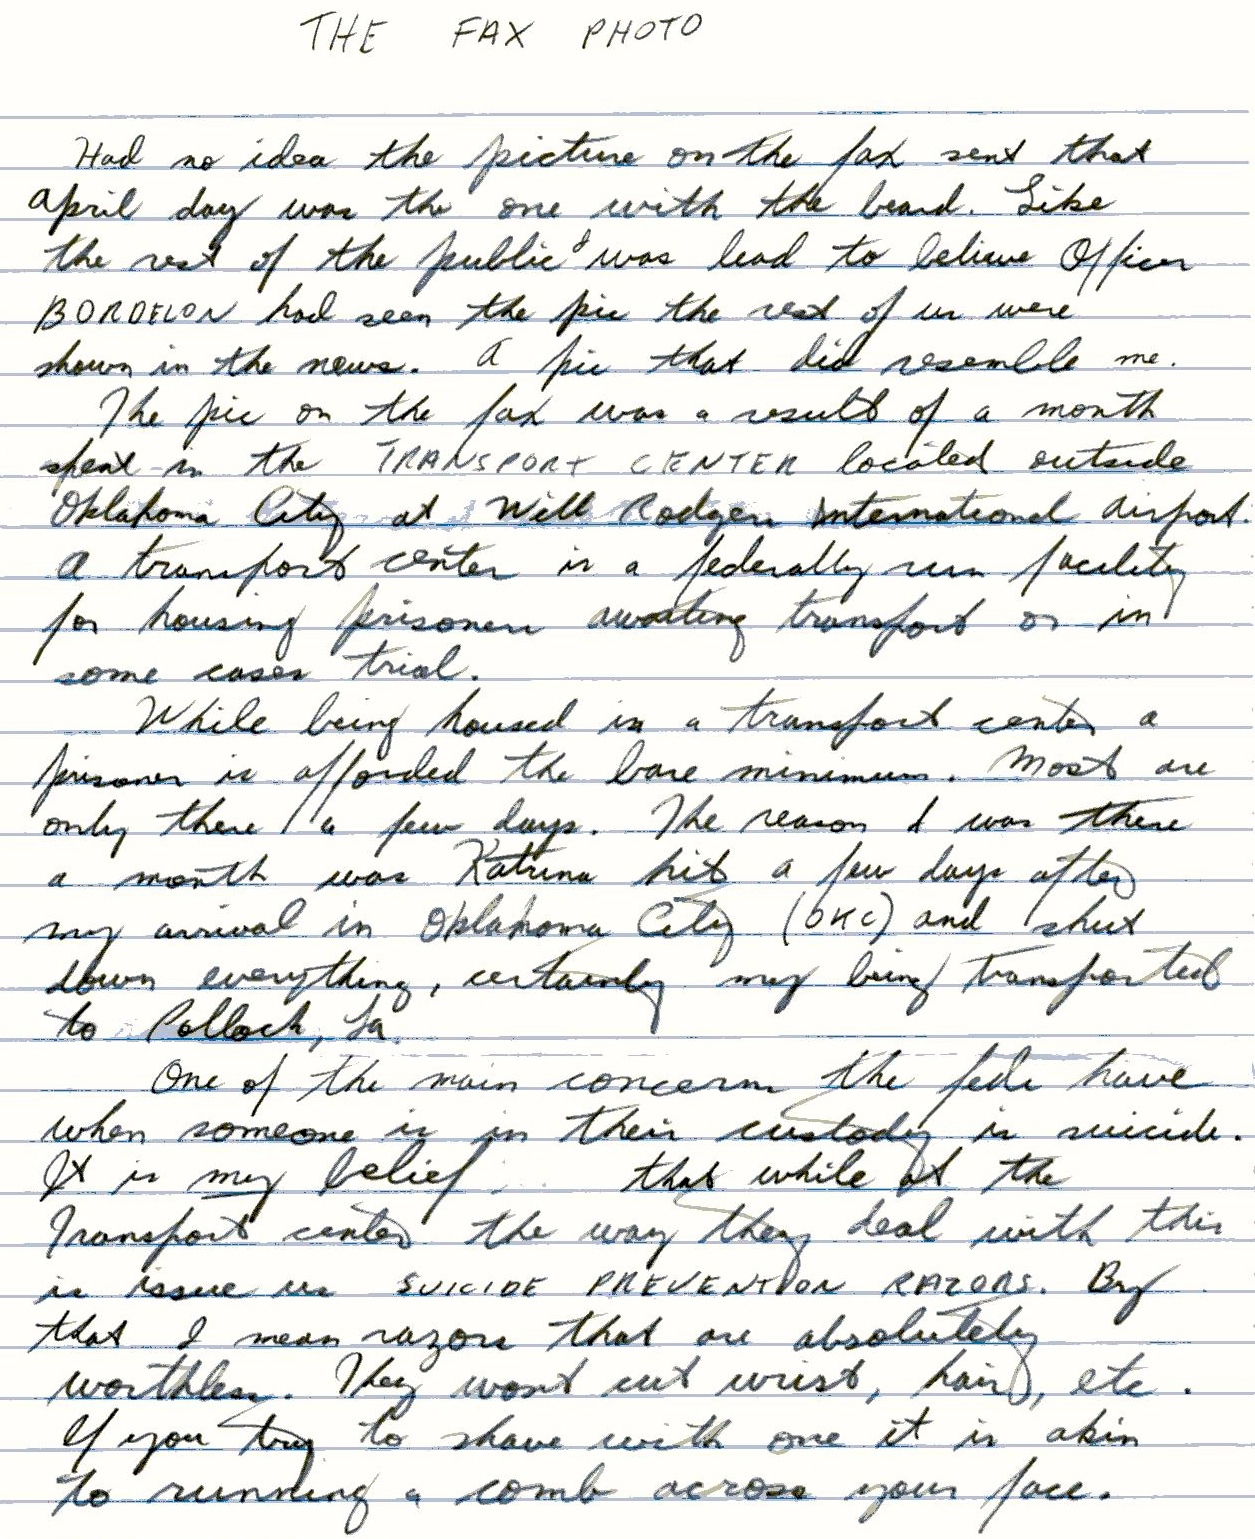 THE FAX PHOTO
Had no idea the picture on the fax sent that
April day was the one with the beard. Like
the rest of the public I was lead to believe Officer
BORDELON had seen the pic the rest of us were
shown in the news. A pic that did resemble me.
The pic on the fax was a result of a month
spent in the TRANSPORT CENTER located outside
Oklahoma City at Will Rodgers International airport.
A transport center is a federally run facility
for housing prisoners awaiting transport or in
some cases trial.
While being housed in a transport center a
prisoner is afforded the bare minimum. Most are
only there a few days. The reason I was there
a month was Katrina hit a few days after
my arrival in Oklahoma City (OKC) and shut
down everything, certainly my being transported
to Pollock, La.
One of the main concerns the feds have
when someone is in their custody is suicide.
It is my belief that while at the
Transport center the way they deal with this
is issue us SUICIDE PREVENTION RAZORS. By
that I mean razors that are absolutely
worthless. They wont cut wrist, hair, etc.
If you try to shave with one it is akin
to running a comb across your face.